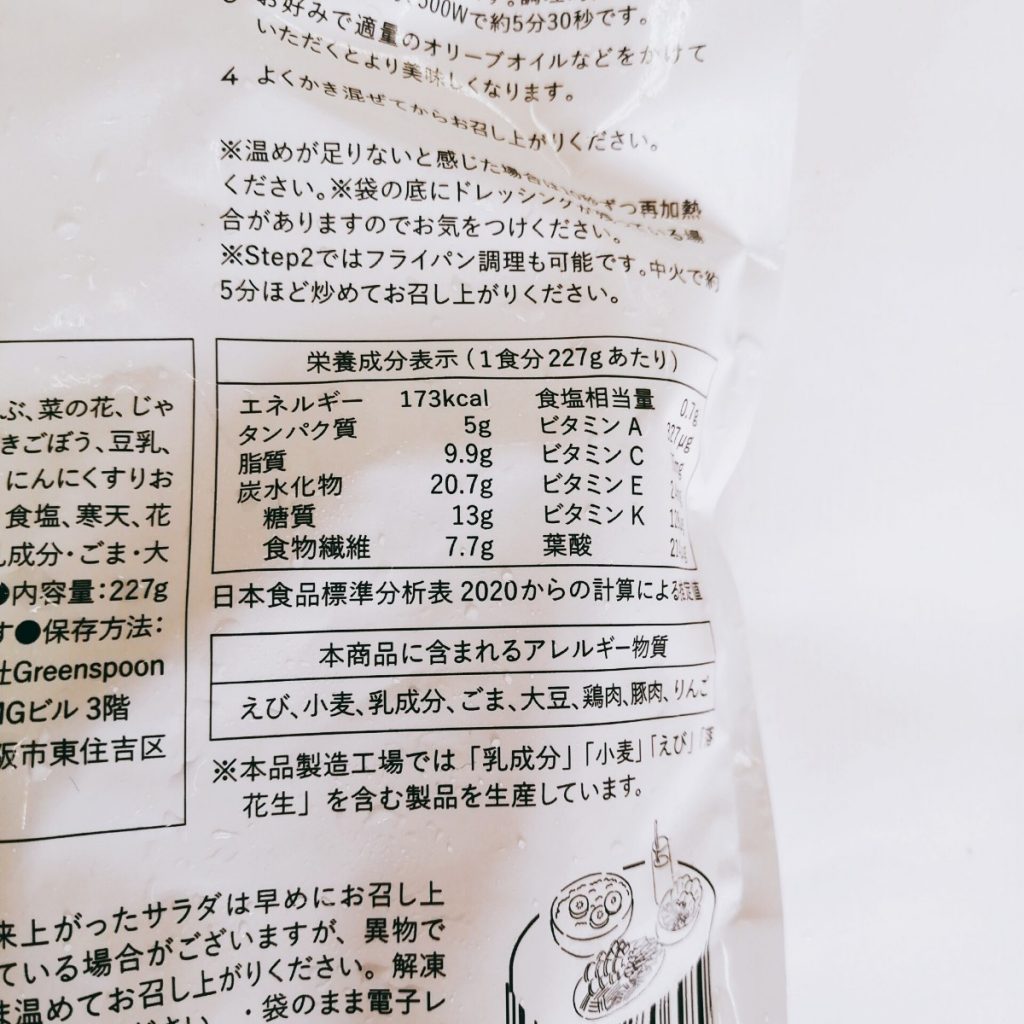 500Wで約5分30秒です。
お好みで適量のオリーブオイルなどをかけて
いただくとより美味しくなります。
4 よくかき混ぜてからお召し上がりください。
※温めが足りないと感じた場合は ずつ再加熱
ください。※袋の底にドレッシングが ている場
合がありますのでお気をつけください。
※Step2ではフライパン調理も可能です。中火で約
5分ほど炒めてお召し上がりください。
ぶ、菜の花、じゃ
きごぼう、豆乳、
にんにくすりお
食塩、寒天、花
乳成分・ごま・大
●内容量:227g
す●保存方法:
社Greenspoon
Gビル 3階
阪市東住吉区
栄養成分表示(1食分227gあたり)
エネルギー 173kcal 食塩相当量 0.7g
タンパク質 5g ビタミンA 327μg
脂質 9.9g ビタミンC
炭水化物 20.7g ビタミンE
糖質 13g ビタミンK
食物繊維 7.7g 葉酸
日本食品標準分析表2020からの計算による推定値
本商品に含まれるアレルギー物質
えび、小麦、乳成分、ごま、大豆、鶏肉、豚肉、りんご
※本品製造工場では「乳成分」「小麦」「えび」「落
花生」を含む製品を生産しています。
来上がったサラダは早めにお召し上
ている場合がございますが、異物で
温めてお召し上がりください。解凍
・袋のまま電子レ